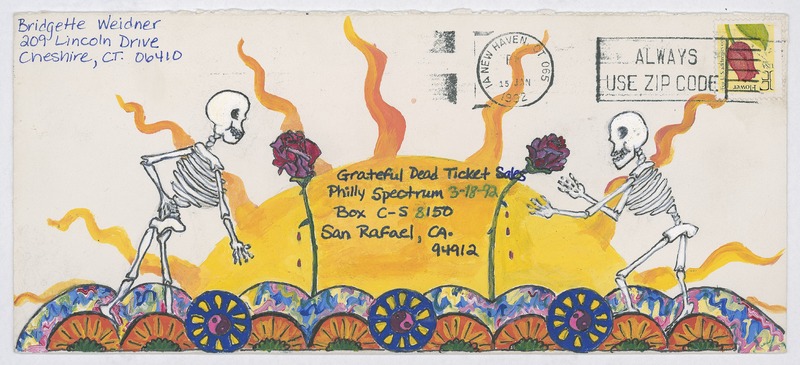 Bridgette Weidner
209 Lincoln Drive
Cheshire, CT. 06410
NEW HAVEN, CT 065
15 JAN
1992
ALWAYS
USE ZIP CODE
Flower
Grateful Dead Ticket Sales
Philly Spectrum 3-18-92
Box C-S 8150
San Rafael, CA.
94912